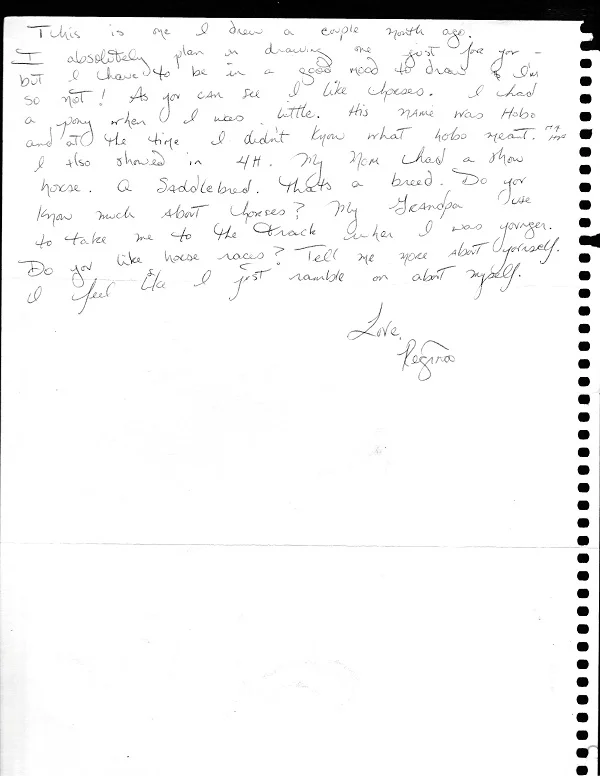 This is one I drew a couple month ago.
I absolutely plan on drawing one just for you -
but I have to be in a good mood to draw & I'm
so not! As you can see I like horses. I had
a pony when I was little. His name was Hobo
and at the time I didn't know what hobo meant. HA HA
I also showed in 4H. My Mom had a show
horse. A Saddlebred. Thats a breed. Do you
know much about horses? My Grandpa use
to take me to the track when I was younger.
Do you like horse races? Tell me more about yourself.
I feel like I just ramble on about myself.
Love,
Regina